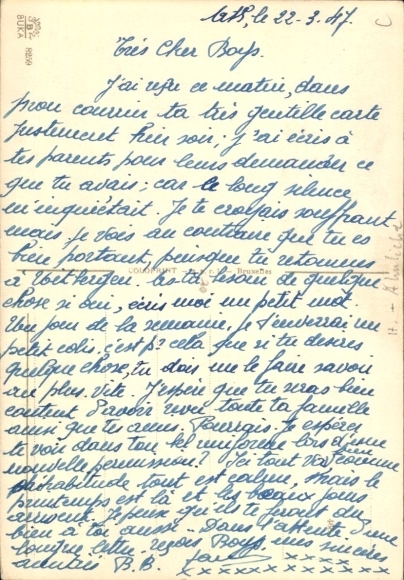 le 22-3.47.
BUKA
Très Cher Boys.
J'ai reçu ce matin, dans
mon courrier ta très gentille carte
Justement hier soir, j'ai écris à
tes parents pour leurs demander ce
que tu avais; car le long silence
m'inquiétait. Je te croyais souffrant
mais je vois au contraire que tu es
bien portant, puisque tu retournes
COLOPRINT Bruxelles
à As-tu besoin de quelque
chose si oui, écris moi un petit mot
Un jour de la semaine, je t'enverrai un
petit colis. c'est p? cela que si tu désires
quelque chose, tu dois me le faire savoir
au plus vite. J'espère que tu seras bien
content d'avoir revu toute ta famille
ainsi que tes amis. Pourrais-je espérer
te voir dans ton bel uniforme lors d'une
nouvelle permission? Ici tout va bien comme
d'habitude tout est calme, mais le
printemps est là et les beaux jours
arrivent. J'espère qu'ils te feront du
bien à toi aussi. Dans l'attente d'une
longue lettre, reçois Boys, mes sincères
amitiés B.B.
x x x x x x x x x x x x